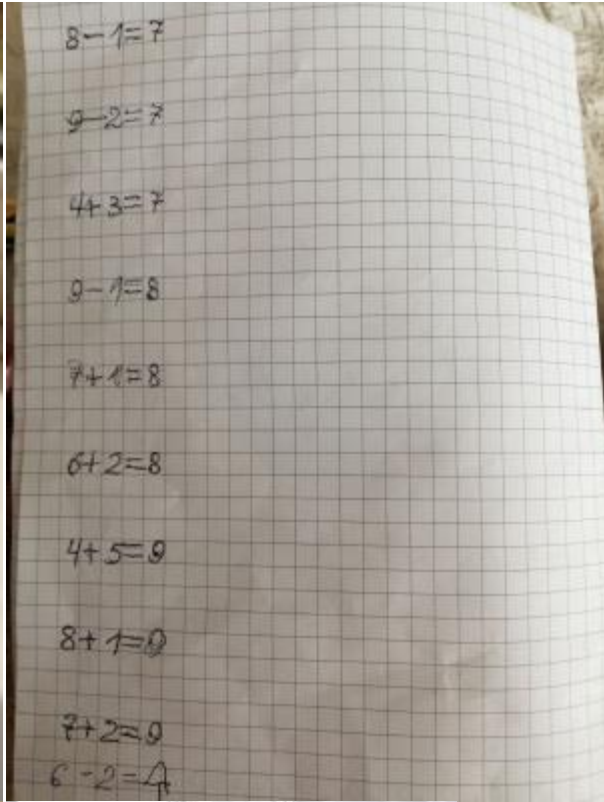 8-1=7
9-2=7
4+3=7
9-1=8
7+1=8
6+2=8
4+5=9
8+1=9
7+2=9
6-2=4